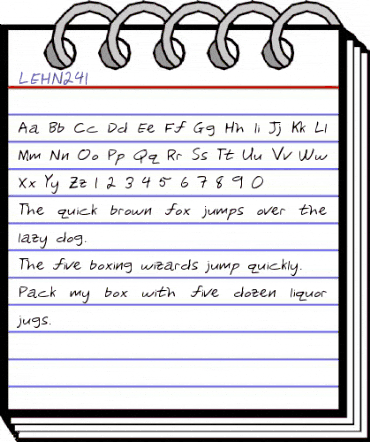 LEHN241
Aa Bb Cc Dd Ee Ff Gg Hh Ii Jj Kk Ll
Mm Nn Oo Pp Qq Rr Ss Tt Uu Vv Ww
Xx Yy Zz 1 2 3 4 5 6 7 8 9 0
The quick brown fox jumps over the
lazy dog.
The five boxing wizards jump quickly.
Pack my box with five dozen liquor
jugs.